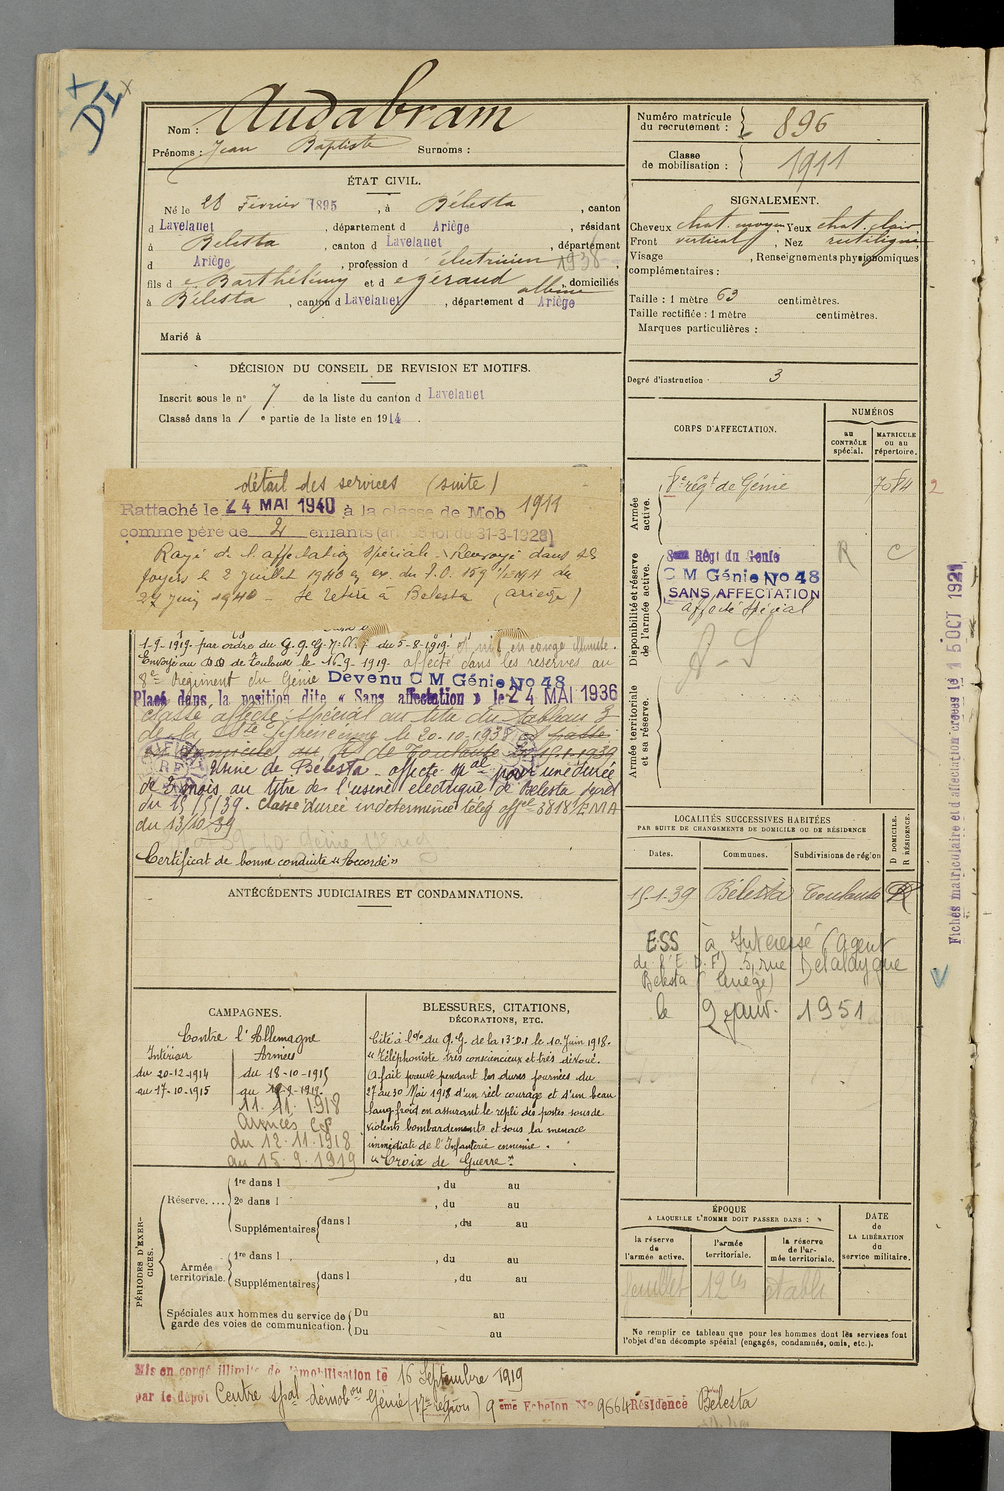 DI
Nom : Audabram
Prénoms : Jean Baptiste Surnoms :
ÉTAT CIVIL.
Né le 28 Février 1895, à Bélesta, canton
d Lavelanet, département d Ariège, résidant
à Bélesta, canton d Lavelanet, département
d Ariège, profession d électricien 1938,
fils d e Barthélémy et d e géraud albine, domiciliés
à Bélesta, canton d Lavelanet, département d Ariège
Marié à
DÉCISION DU CONSEIL DE REVISION ET MOTIFS.
Inscrit sous le n° 7 de la liste du canton d Lavelanet
Classé dans la 1e partie de la liste en 1914.
détail des services (suite)
Rattaché le 24 MAI 1940 à la classe de Mob 1911
comme père de 2 enfants (art. 58 loi du 31-3-1928)
Rayé de l'affectation spéciale. Renvoyé dans ses
foyers le 2 juillet 1940 en ex. du T.O. 159 1/EMA du
24 juin 1940 - Se retire à Belesta (Ariège)
1-9-1919. par ordre du G.Q.G. du 5-8-1919. et mis en congé illimité.
Envoyé au DD de Toulouse le 16-9-1919. affecté dans les réserves au
8e Régiment du Génie Devenu C M Génie No 48
Placé dans la position dite « Sans affectation » le 24 MAI 1936
classé affecté spécial au titre du tableau 3
de la Sté Pyrénéenne le 20-10-1938 et passé
de Toulouse 15-1-1939
Usine de Bélesta - affecté spal pour une durée
de 3 mois au titre de l'usine électrique de Bélesta
du 15/5/39. Classé durée indéterminée télég offel 3818/EMA
du 13/10/39
Certificat de bonne conduite "Accordé"
ANTÉCÉDENTS JUDICIAIRES ET CONDAMNATIONS.
CAMPAGNES.
Contre l'Allemagne
Intérieur Armées
du 20-12-1914 du 18-10-1915
au 17-10-1915 au
11.11.1918
Armées
du 12.11.1918
au 15.9.1919
BLESSURES, CITATIONS,
DÉCORATIONS, ETC.
Cité à l'ordre du Q.G. de la 13e D.I le 10 Juin 1918.
"Téléphoniste très consciencieux et très dévoué.
A fait preuve pendant les dures journées du
27 au 30 Mai 1918 d'un réel courage et d'un beau
sang-froid en assurant le repli des postes sous de
violents bombardements et sous la menace
immédiate de l'Infanterie ennemie.
"Croix de Guerre".
PÉRIODES D'EXERCICES.
Réserve.... 1re dans l , du au
2e dans l , du au
Supplémentaires dans l , du au
Armée territoriale. 1re dans l , du au
Supplémentaires dans l , du au
Spéciales aux hommes du service de garde des voies de communication. Du au
Du au
Numéro matricule du recrutement : 896
Classe de mobilisation : 1911
SIGNALEMENT.
Cheveux chat. moyen Yeux chat. clair
Front vertical, Nez rectiligne
Visage , Renseignements physionomiques
complémentaires :
Taille : 1 mètre 63 centimètres.
Taille rectifiée : 1 mètre centimètres.
Marques particulières :
Degré d'instruction 3
CORPS D'AFFECTATION.
NUMÉROS
au CONTRÔLE spécial.
MATRICULE ou au répertoire.
Armée active.
8e régt de Génie 7084 2
Disponibilité et réserve de l'armée active.
8me Régt du Genie R C
C M Génie No 48
SANS AFFECTATION
affecté spécial
A-S
Armée territoriale et sa réserve.
LOCALITÉS SUCCESSIVES HABITÉES
PAR SUITE DE CHANGEMENTS DE DOMICILE OU DE RÉSIDENCE
Dates. Communes. Subdivisions de région
D DOMICILE. R RÉSIDENCE.
15-1-39 Bélesta Toulouse R
ESS à Intéressé (Agent
de l'E D.F) 5, rue Delalaygue
Belesta (Ariège)
le 9 janv. 1951
ÉPOQUE
A LAQUELLE L'HOMME DOIT PASSER DANS :
la réserve de l'armée active.
l'armée territoriale.
la réserve de l'armée territoriale.
DATE de LA LIBÉRATION du service militaire.
feuillet établi
Ne remplir ce tableau que pour les hommes dont les services font
l'objet d'un décompte spécial (engagés, condamnés, omis, etc.).
Fiches matriculaire et d'affectation créées le 15 OCT 1921
Mis en congé illimité de démobilisation le 16 Septembre 1919
par le dépôt Centre spal démobon Génie (17e région) 9 ème Echelon No 9664 Résidence Bélesta